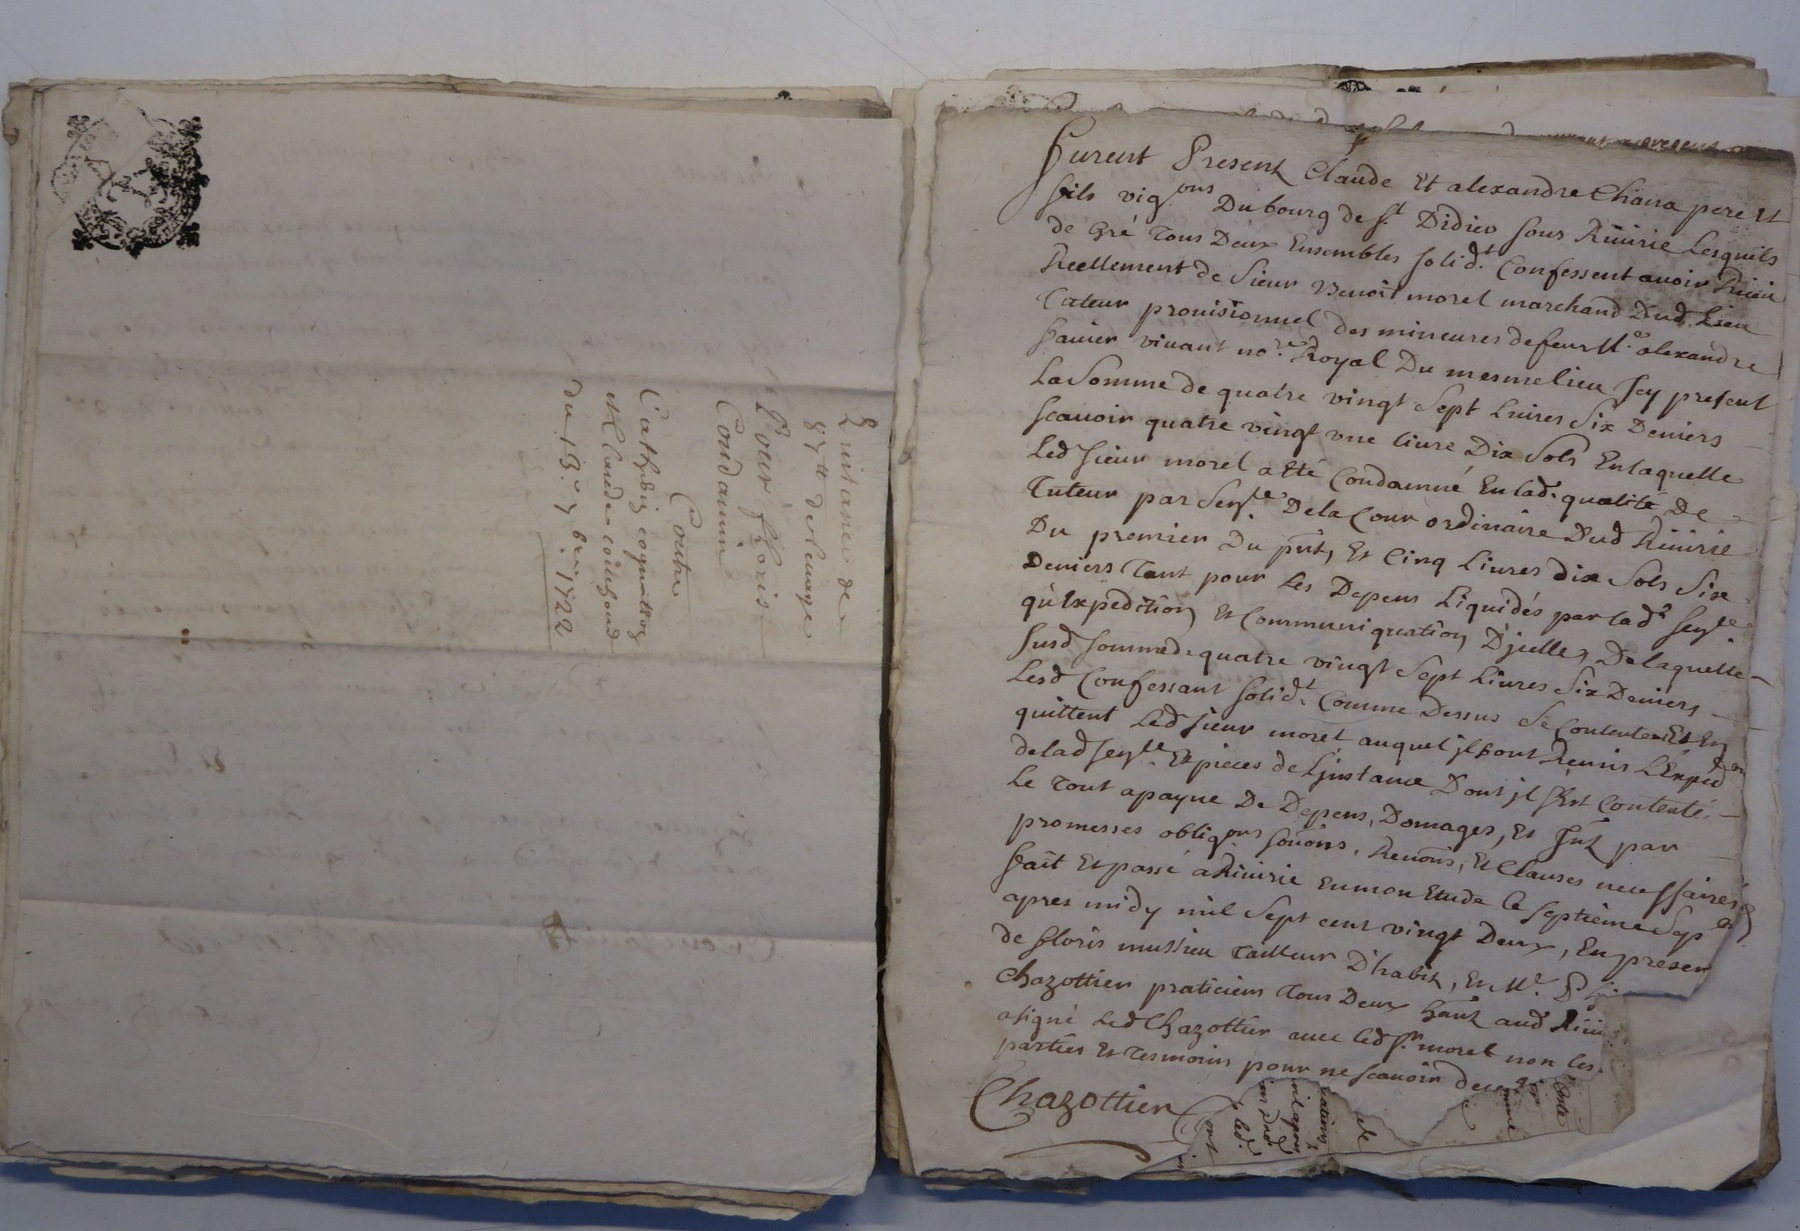 Quittance de
87ᵗᵗ de louage
Pour floris
Condamin
Contre
Cath
et Claude
du 13.ᵉ 7bre. 1722
Furent Present Claude Et alexandre Chana pere Et
fils vig.ons Du bourg de St Didier sous Riuirie Lesquels
de gré Tous Deux Ensembles solidt. Confessent auoir Receu
Reellement de sieur Benoit morel marchand Dud. Lieu
Tuteur prouisionnel des mineures de feu M.e alexandre
vivant no.re Royal Du mesme lieu Jcy present
La Somme de quatre vingt Sept Liures Six Deniers
scauoir quatre vingt vne liure Dix Sols En laquelle
Led sieur morel a Eté Condamné En lad. qualité De
Tuteur par Sen.ce De la Cour ordinaire Dud Riuirie
Du premier Du pnt, Et Cinq Liures dix Sols Six
Deniers Tant pour Les Depens Liquidés par lad.e sen.ce
qu'Expedition Et Communiquation D'jcelle, De laquelle
susd somme de quatre vingt Sept Liures Six Deniers
Lesd Confessant solidt. Comme Dessus se Contentent Et En
quittent Led sieur morel auquel jls ont Remis L'Exped.on
de lad sen.ce Et pieces de L'jnstance Dont jl s'Est Contenté
Le Tout a payne De Depens, Domages, Et Jnt par
promesses oblig.ons soûons, Renons, Et Clauses necessaires
fait Et passé a Riuirie En mon Etude le septieme Sep.bre
apres midy mil Sept cent vingt Deux, En presen
de floris mussieu Tailleur D'habit, Et M.e
Chazottier praticien Tous Deux hant aud Riui
a signé Led Chazottier auec led s.r morel non les
parties Et Tesmoins pour ne scauoir de ce
Chazottier